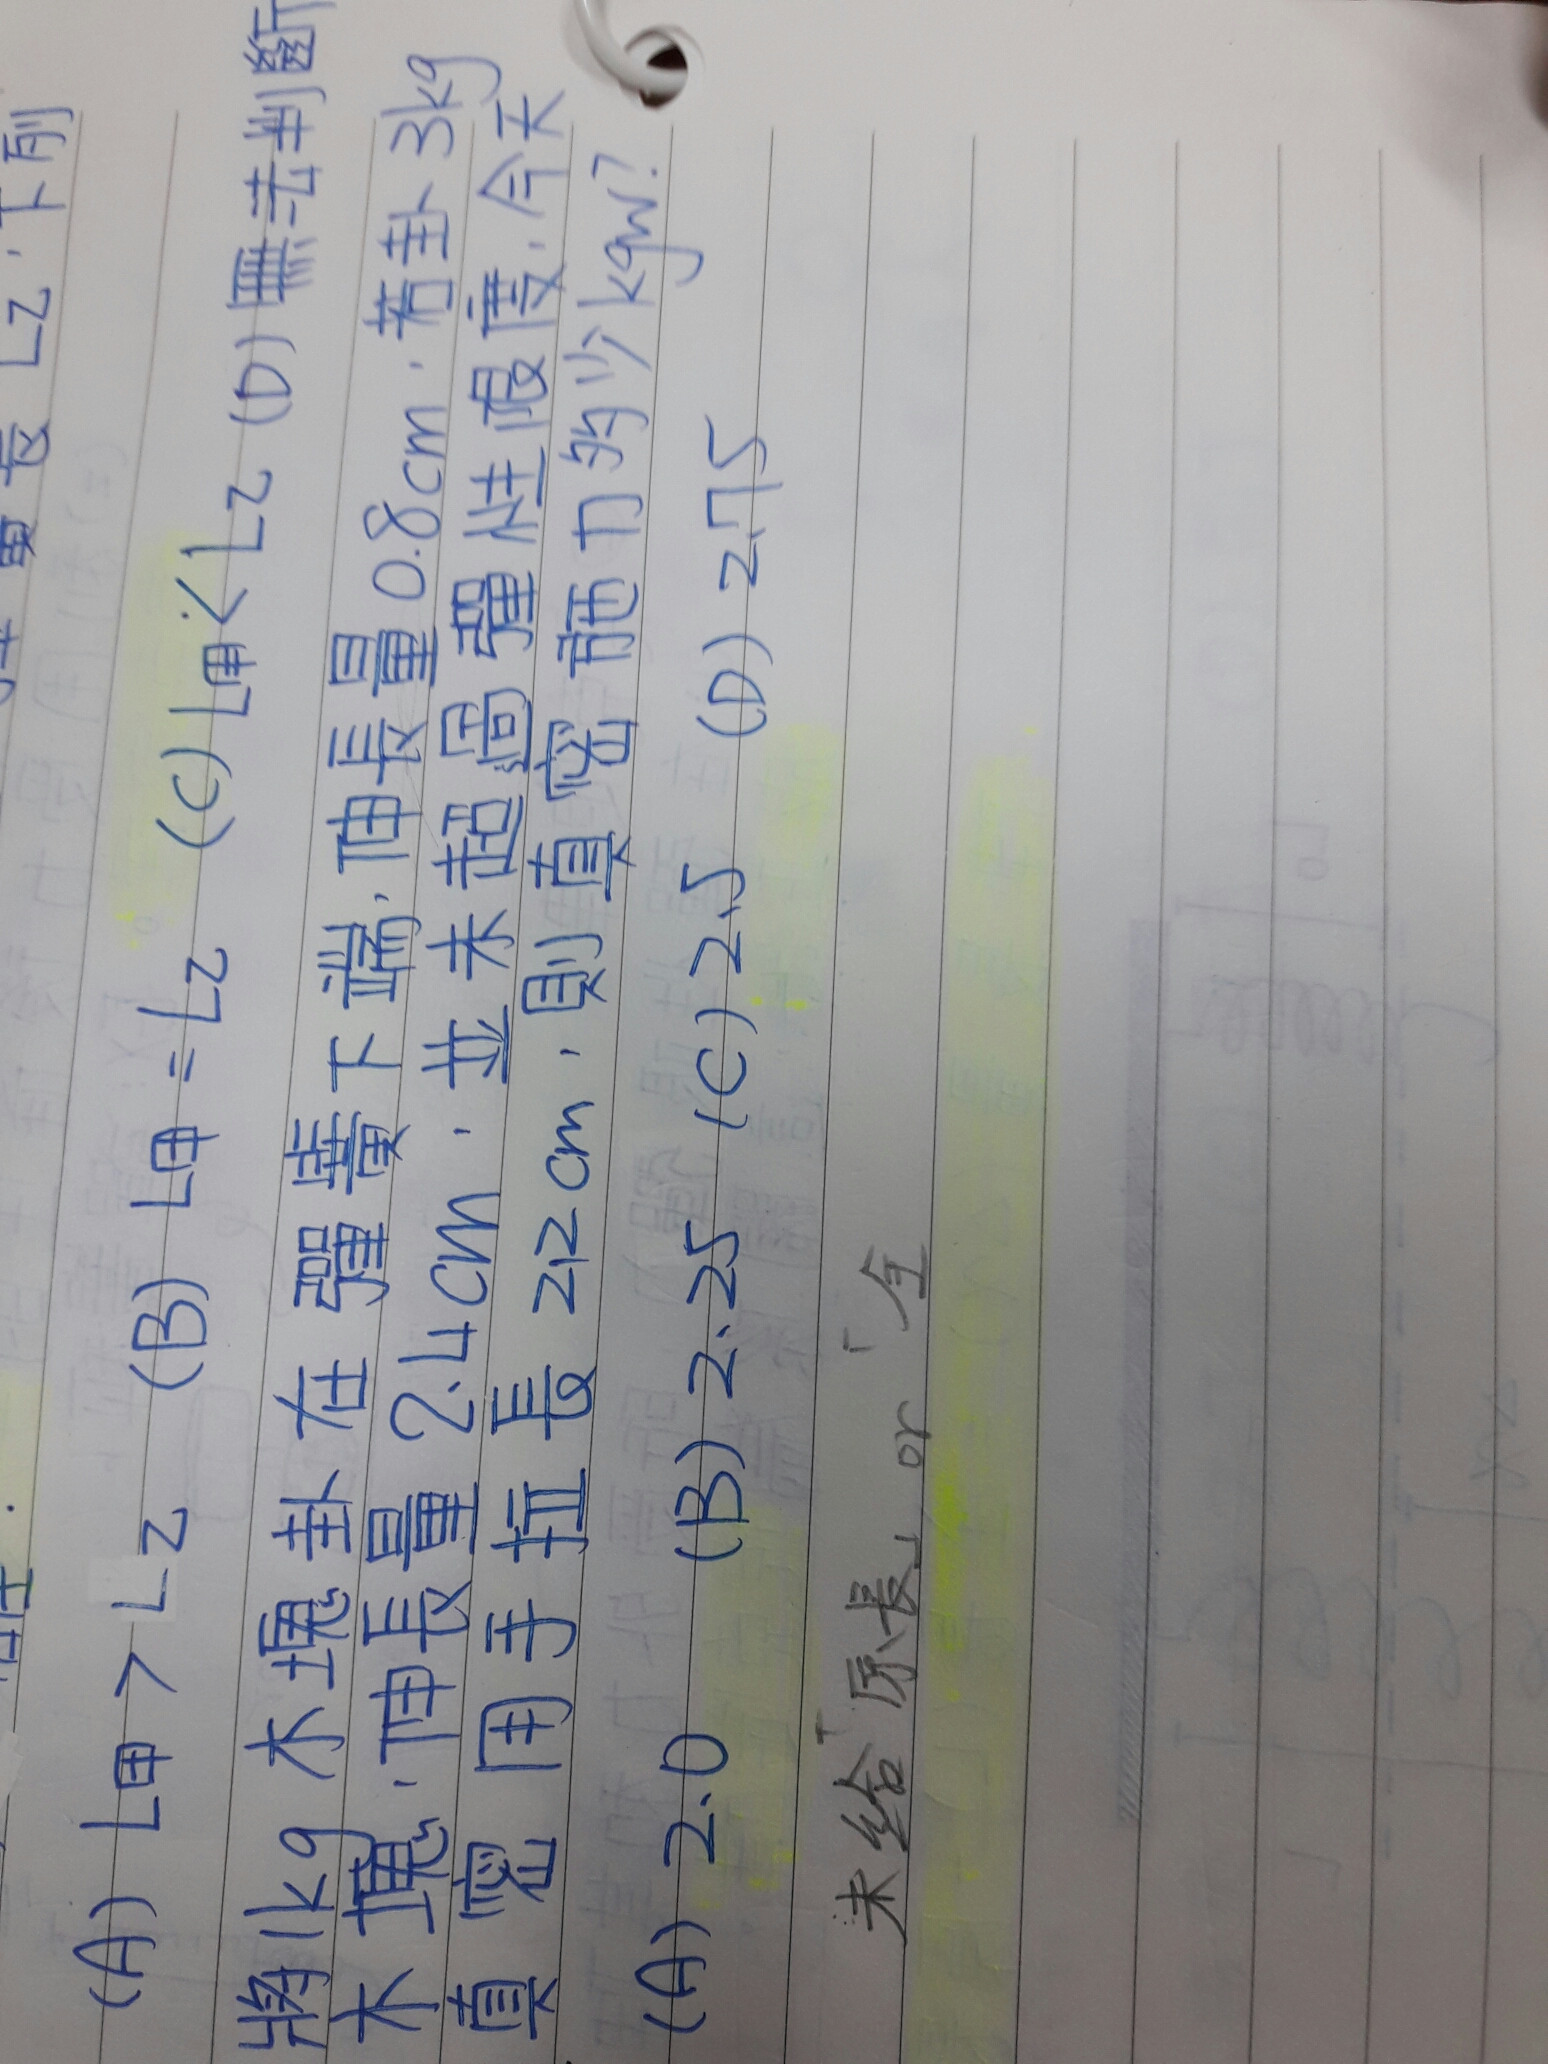 下列
(A) L甲 > L乙 (B) L甲 = L乙 (C) L甲 < L乙 (D) 無法判斷
將1kg 木塊掛在彈簧下端，伸長量0.8cm，若掛3kg
木塊，伸長量2.4cm，並未超過彈性限度，今天
真宓用手拉長2.2cm，則真宓施力多少kgw?
(A) 2.0 (B) 2.25 (C) 2.5 (D) 2.75
未給「原長」or「全